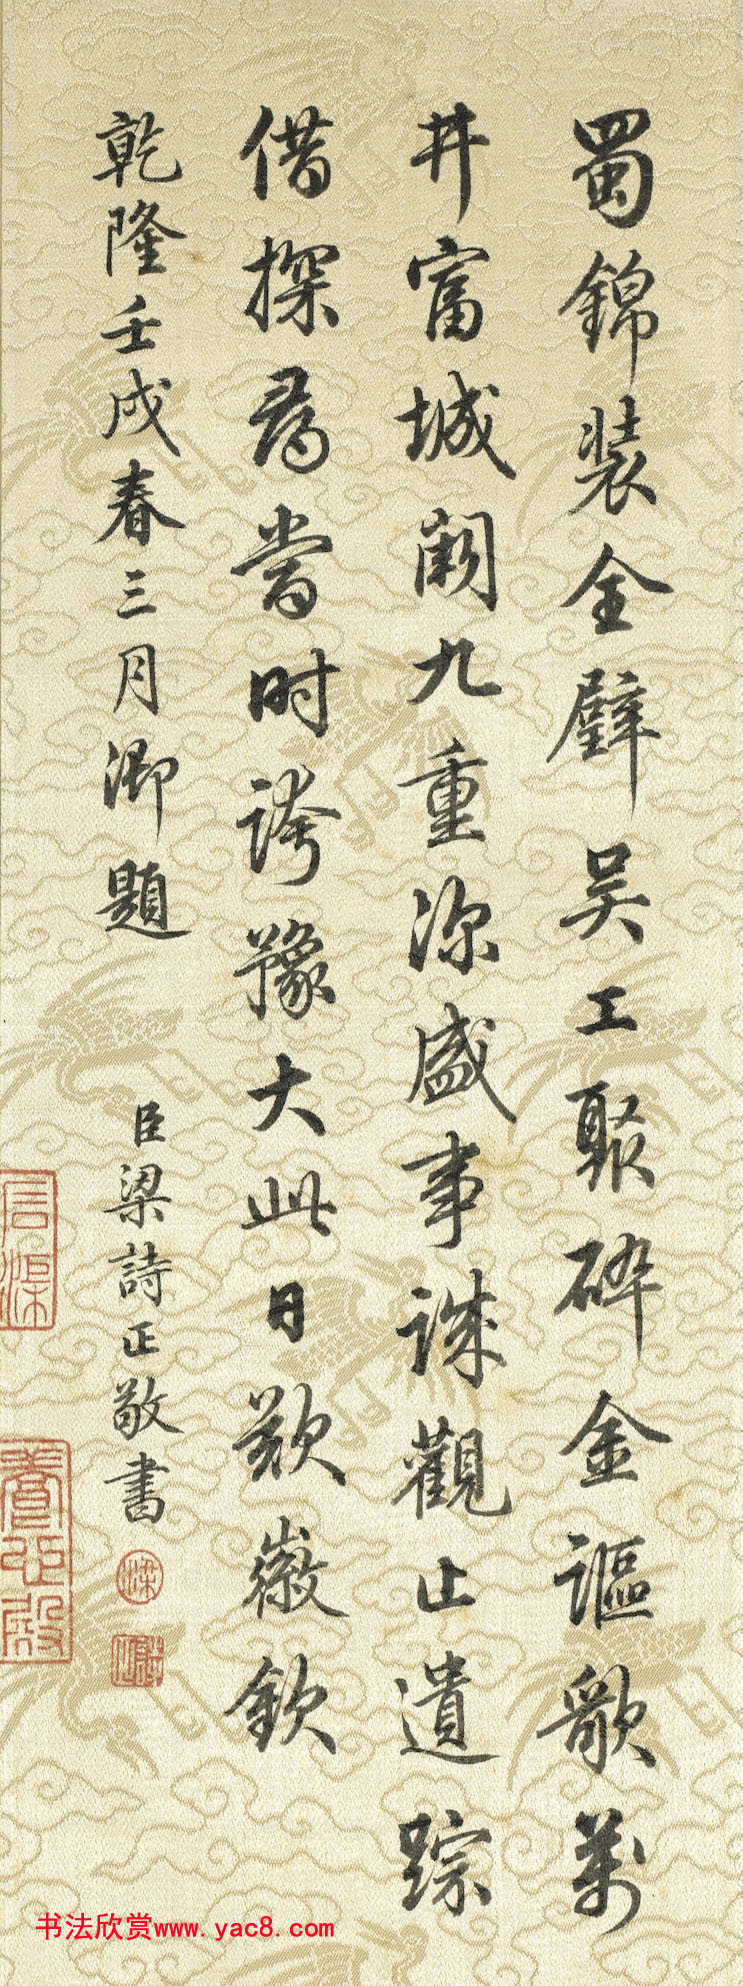 蜀錦装全璧吴工聚碎金謳歌萬
井富城闕九重深盛事誠觀止遺踪
借探尋當时誇豫大此日歎徽欽
乾隆壬戌春三月御題
臣梁詩正敬書
梁
養心殿
书法欣赏www.yac8.com